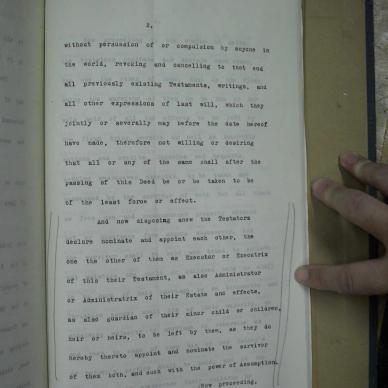 2.
without persuasion of or compulsion by anyone in
the world, revoking and cancelling to that end
all previously existing Testaments, writings, and
all other expressions of last will, which they
jointly or severally may before the date hereof
have made, therefore not willing or desiring
that all or any of the same shall after the
passing of this Deed be or be taken to be
of the least force or effect.
And now disposing anew the Testators
declare nominate and appoint each other, the
one the other of them as Executor or Executrix
of this their Testament, as also Administrator
or Administratrix of their Estate and effects,
as also guardian of their minor child or children,
heir or heirs, to be left by them, as they do
hereby thereto appoint and nominate the survivor
of them both, and such with the power of Assumption.
Now proceeding,